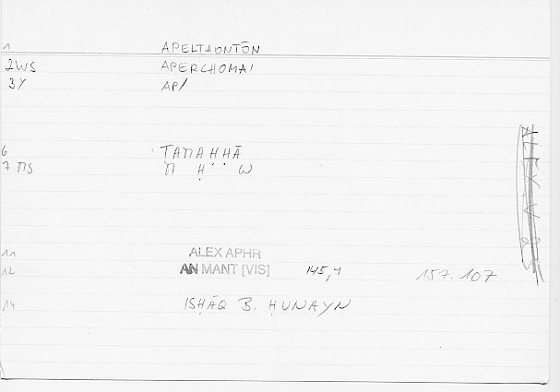 1 APELTHONTŌN
2WS APERCHOMAI
3Y AP/
6 TANAḤḤĀ
7 NS N Ḥ W
11 ALEX APHR
12 AN MANT [VIS] 145,4 157.107
14 ISḤĀQ B. ḤUNAYN